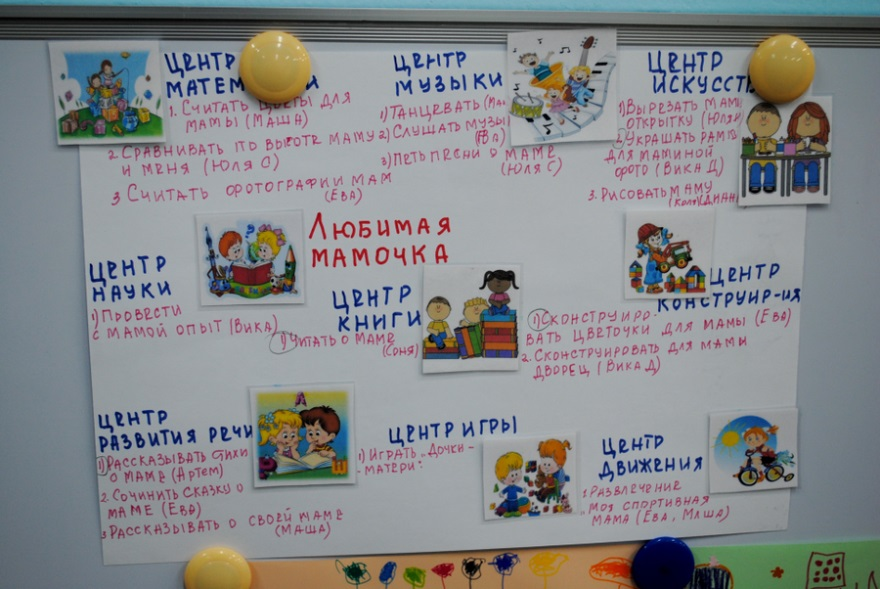 ЦЕНТР
МАТЕМ
1. СЧИТАТЬ ЦВЕТЫ ДЛЯ
МАМЫ (МАША)
2 СРАВНИВАТЬ ПО ВЫСОТЕ МАМУ
И МЕНЯ (ЮЛЯ С)
3 СЧИТАТЬ ФОТОГРАФИИ МАМ
(ЕВА)
ЦЕНТР
МУЗЫКИ
1) ТАНЦЕВАТЬ
2) СЛУШАТЬ МУЗЫ
3) ПЕТЬ ПЕСНИ О МАМЕ
(ЮЛЯ С)
ЦЕНТР
ИСКУССТ
1) ВЫРЕЗАТЬ МАМ
ОТКРЫТКУ (ЮЛЯ
2 УКРАШАТЬ РАМК
ДЛЯ МАМИНОЙ
ФОТО (ВИКА Д)
3. РИСОВАТЬ МАМУ
(КОЛЯ) (ДИАНА
ЛЮБИМАЯ
МАМОЧКА
ЦЕНТР
НАУКИ
1) ПРОВЕСТИ
С МАМОЙ ОПЫТ (ВИКА)
ЦЕНТР
КНИГИ
1) ЧИТАТЬ О МАМЕ
(СОНЯ)
ЦЕНТР
КОНСТРУИР-ИЯ
1) СКОНСТРУИРО-
ВАТЬ ЦВЕТОЧКИ ДЛЯ МАМЫ (ЕВА)
2. СКОНСТРУИРОВАТЬ ДЛЯ МАМЫ
ДВОРЕЦ (ВИКА Д)
ЦЕНТР
РАЗВИТИЯ РЕЧИ
1) РАССКАЗЫВАТЬ СТИХИ
О МАМЕ (АРТЕМ)
2 СОЧИНИТЬ СКАЗКУ О
МАМЕ (ЕВА)
3 РАССКАЗЫВАТЬ О СВОЕЙ МАМЕ
(МАША)
ЦЕНТР ИГРЫ
1 ИГРАТЬ „ДОЧКИ-
МАТЕРИ"
ЦЕНТР
ДВИЖЕНИЯ
1 РАЗВЛЕЧЕНИЕ
МОЯ СПОРТИВНАЯ
МАМА (ЕВА, МАША)